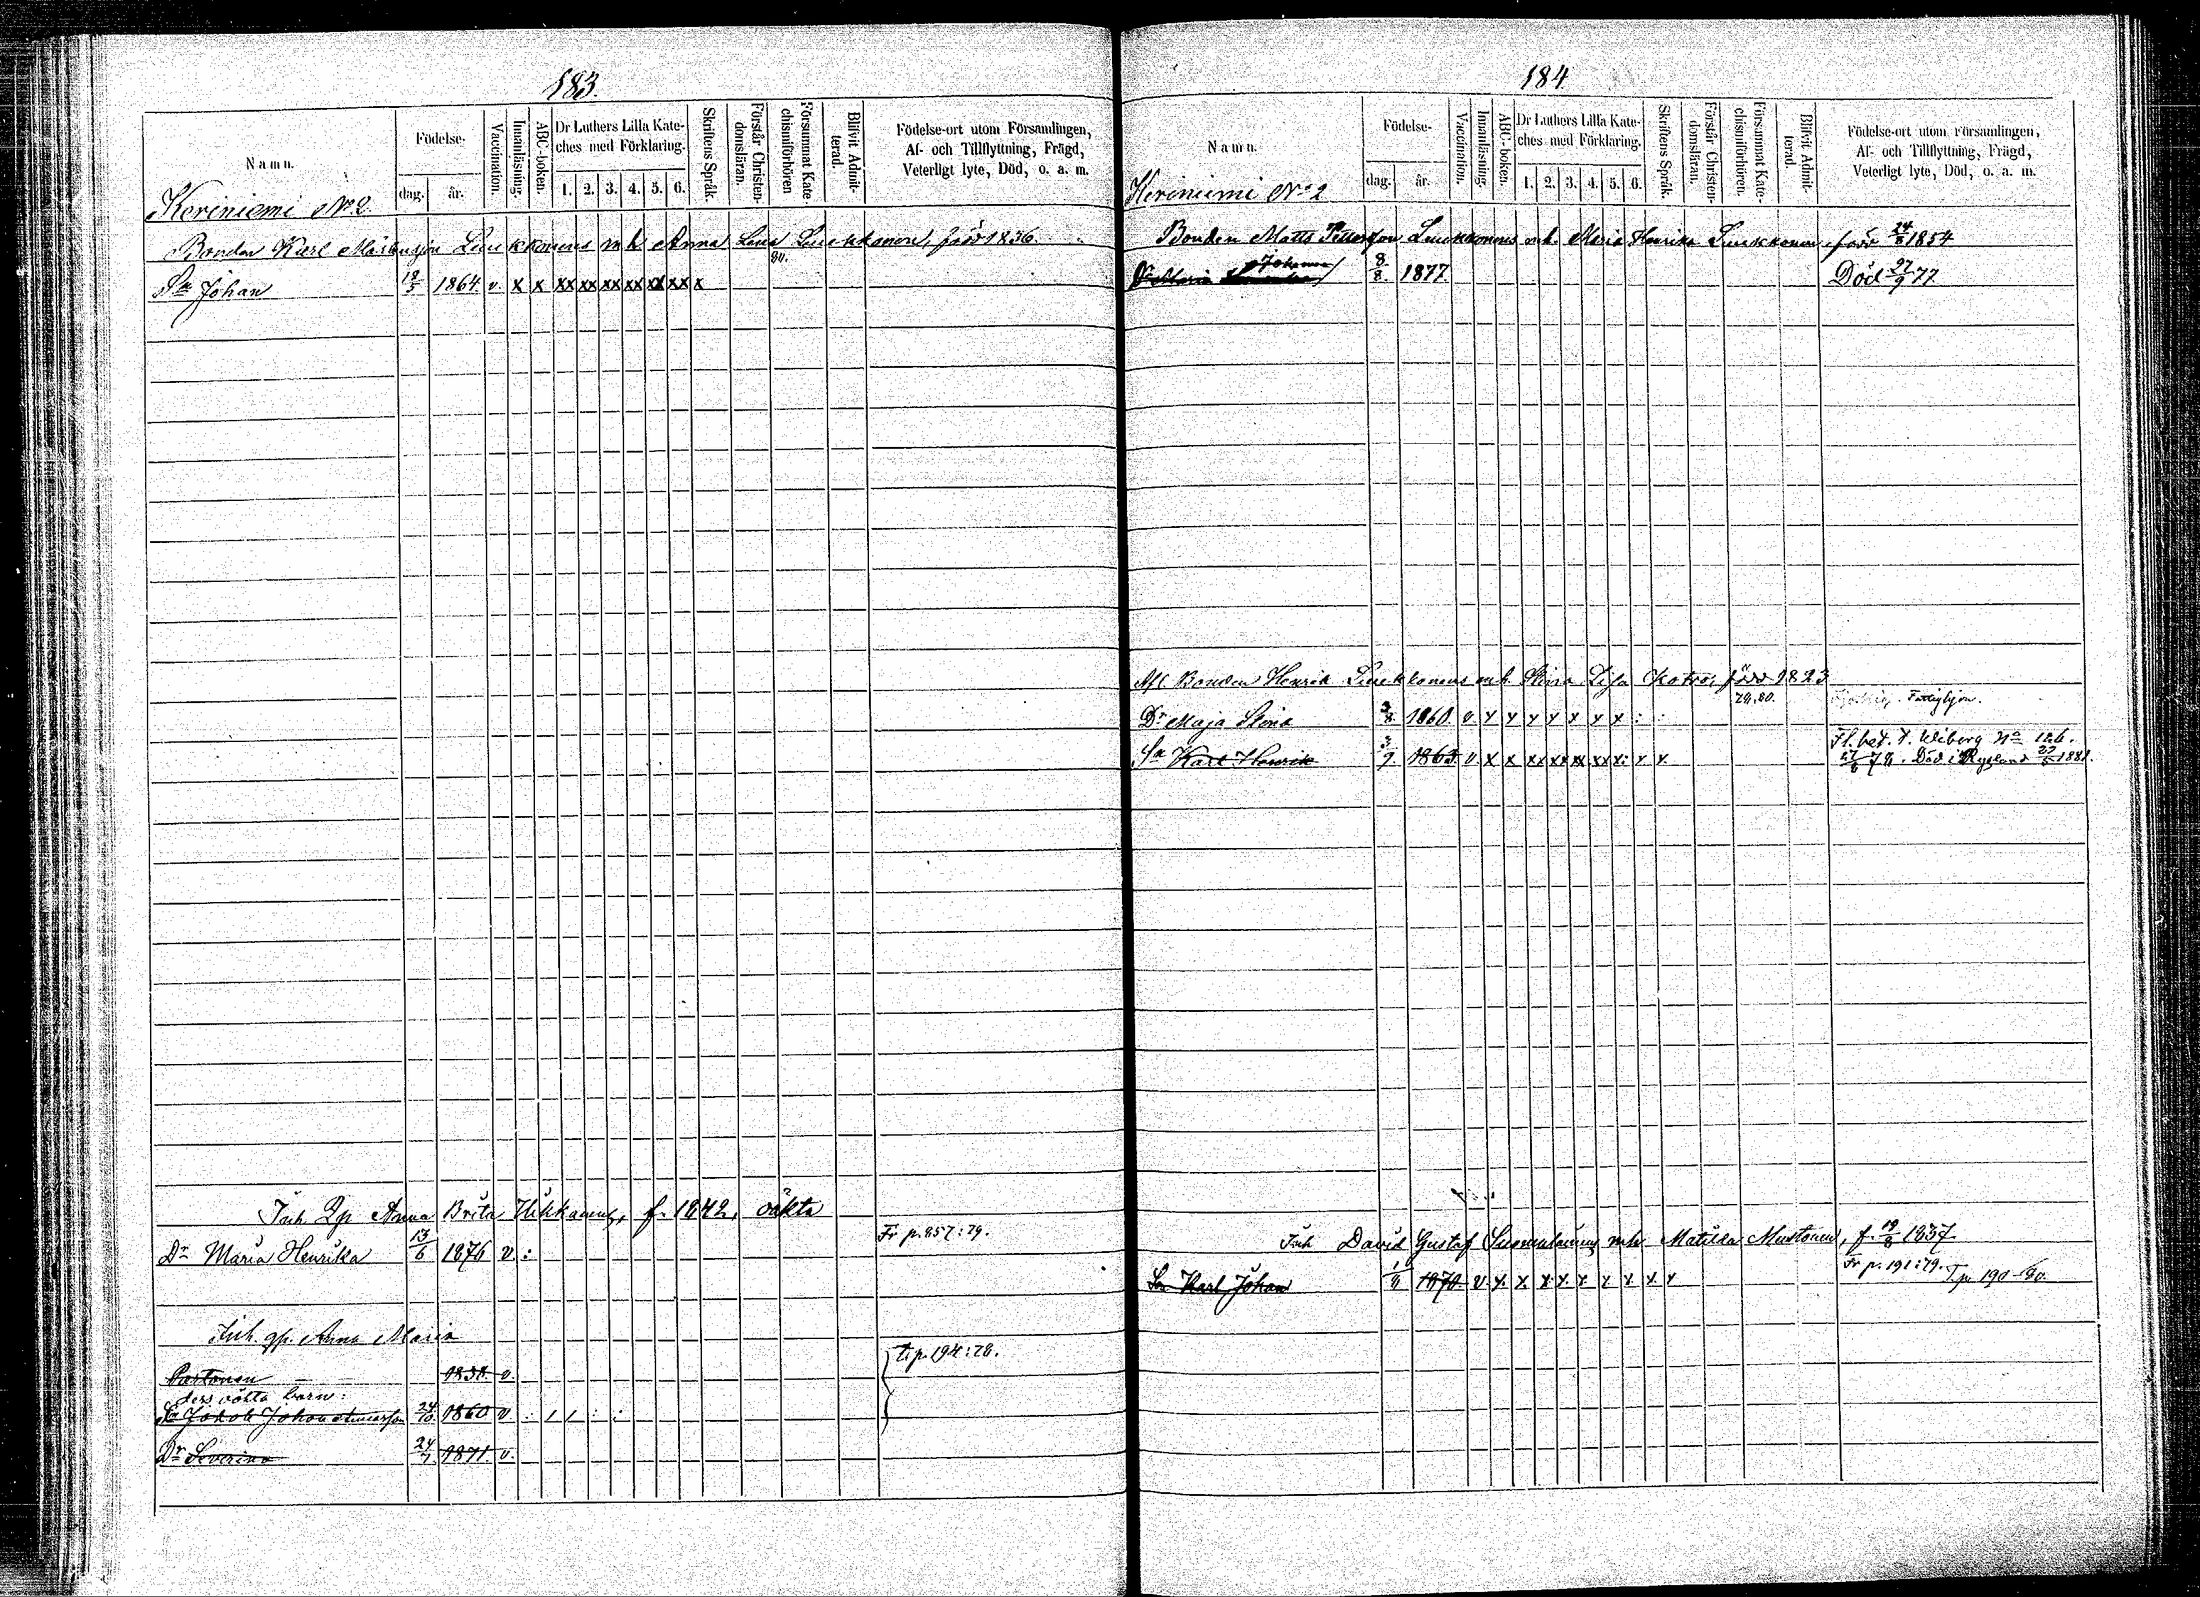 183.
Namn.
Födelse-
dag.
år.
Vaccination.
Innanläsning.
ABC-boken.
Dr Luthers Lilla Kate-
ches med Förklaring.
1. 2. 3. 4. 5. 6.
Skriftens Språk.
Förstår Christen-
domsläran.
Försummat Kate
chismiförhören
Blifvit Admit-
terad.
Födelse-ort utom Församlingen,
Af- och Tillflyttning, Frägd,
Veterligt lyte, Död, o. a. m.
Keriniemi No 2.
Bonden Karl Mårtensson Luukkonens enk. Anna Lena Luukkonen, född 1836.
80.
Sn Johan 1864. v. x x xx xx xx xx xx xx x
Inh. Qp Anna Brita Hukkanens, f. 1842, oäkta
Dr Maria Henrika 13/6 1876 v : Fr p. 857:79.
Inh. qp. Anna Maria
Partanen 1838. v. t. p. 194:78.
dess oäkta barn:
Sn Jakob Johan 24/10 1860 v : , , : :
Dr Severina 24/7 1871. v.
184
Namn.
Födelse-
dag.
år.
Vaccination.
Innanläsning.
ABC-boken.
Dr Luthers Lilla Kate-
ches med Förklaring.
1. 2. 3. 4. 5. 6.
Skriftens Språk.
Förstår Christen-
domsläran.
Försummat Kate-
chismiförhören.
Blifvit Admit-
terad.
Födelse-ort utom Församlingen,
Af- och Tillflyttning, Frägd,
Veterligt lyte, Död, o. a. m.
Keriniemi No 2
Bonden Matts Pettersson Luukkonens enk. Maria Henrika Luukkonen, född 24/8 1854
Dr Maria Johanna 8/8. 1877. Död 27/9 77.
Afl. Bonden Henrik Luukkonens enk. Stina Lisa född 1823
79, 80.
Dr Maja Stina 1860. v x x x x x x x : : Fattighjon.
Sn Karl Henrik 3/9 1863. v x x xx xx xx xx x: x x Fl. bet. t. Wiborg No 126.
27/6 78. Död i Ryssland 1881.
Inh David Gustaf mh. Matilda Mustonen, f. 19/8 1837.
Fr p. 191:79. T. p. 190-80.
Sn Karl Johan 1870. v. x. x x x x x x x x